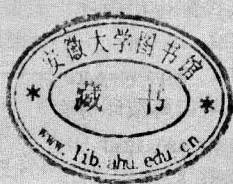 安徽大学图书馆
* 藏 书 *
www.lib.ahu.edu.cn